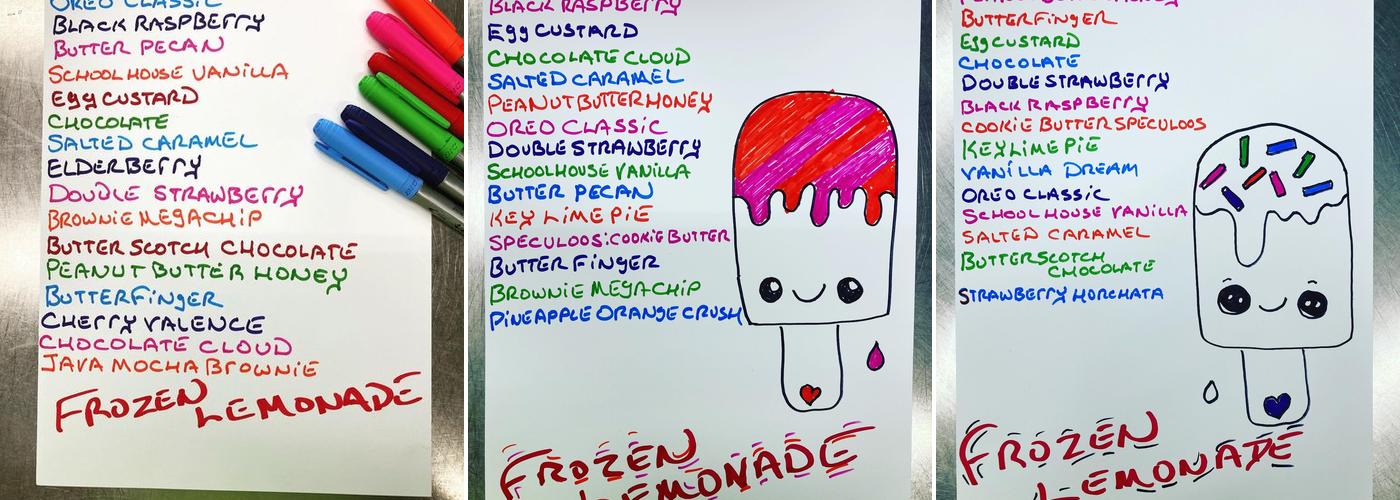 OREO CLASSIC
BLACK RASPBERRY
BUTTER PECAN
SCHOOLHOUSE VANILLA
Egg CUSTARD
CHOCOLATE
SALTED CARAMEL
ELDERBERRY
DOUBLE STRAWBERRY
BROWNIE MEGACHIP
BUTTERSCOTCH CHOCOLATE
PEANUT BUTTER HONEY
BUTTERFINGER
CHERRY VALENCE
CHOCOLATE CLOUD
JAVA MOCHA BROWNIE
FROZEN
LEMONADE
BLACK RASPBERRY
Egg CUSTARD
CHOCOLATE CLOUD
SALTED CARAMEL
PEANUT BUTTER HONEY
OREO CLASSIC
DOUBLE STRAWBERRY
SCHOOLHOUSE VANILLA
BUTTER PECAN
KEY LIME PIE
SPECULOOS:COOKIE BUTTER
BUTTERFINGER
BROWNIE MEGACHIP
PINEAPPLE ORANGE CRUSH
FROZEN
LEMONADE
PEANUT BUTTER HONEY
BUTTERFINGER
Egg CUSTARD
CHOCOLATE
DOUBLE STRAWBERRY
BLACK RASPBERRY
COOKIE BUTTER SPECULOOS
KEY LIME PIE
VANILLA DREAM
OREO CLASSIC
SCHOOLHOUSE VANILLA
SALTED CARAMEL
BUTTERSCOTCH
CHOCOLATE
STRAWBERRY HORCHATA
FROZEN
LEMONADE